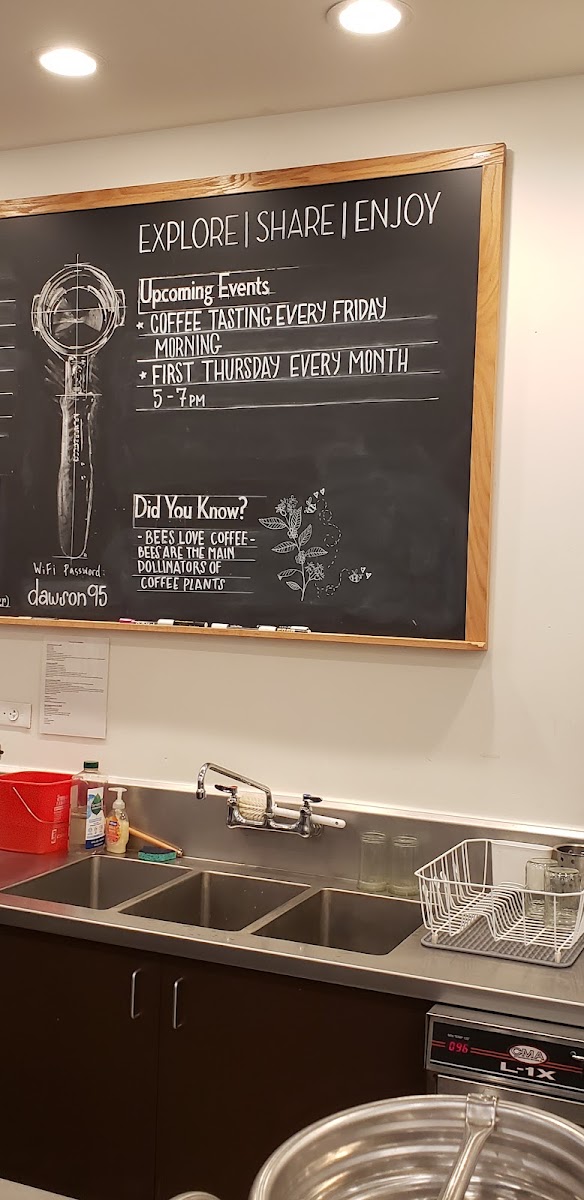 EXPLORE | SHARE | ENJOY
Upcoming Events
* COFFEE TASTING EVERY FRIDAY
MORNING
* FIRST THURSDAY EVERY MONTH
5-7PM
Did You Know?
- BEES LOVE COFFEE -
BEES ARE THE MAIN
POLLINATORS OF
COFFEE PLANTS
WiFi Password:
dawson95
096
CMA
L-1X